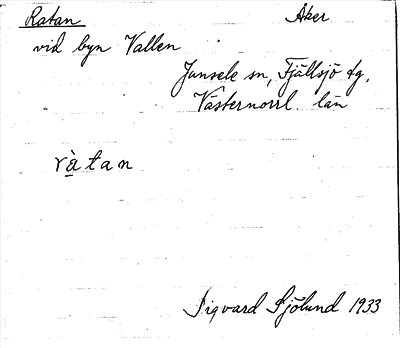 Ratan Åker
vid byn Vallen
Junsele sn, Fjällsjö tg,
Västernorrl. län
ràtan
Sigvard Sjölund 1933